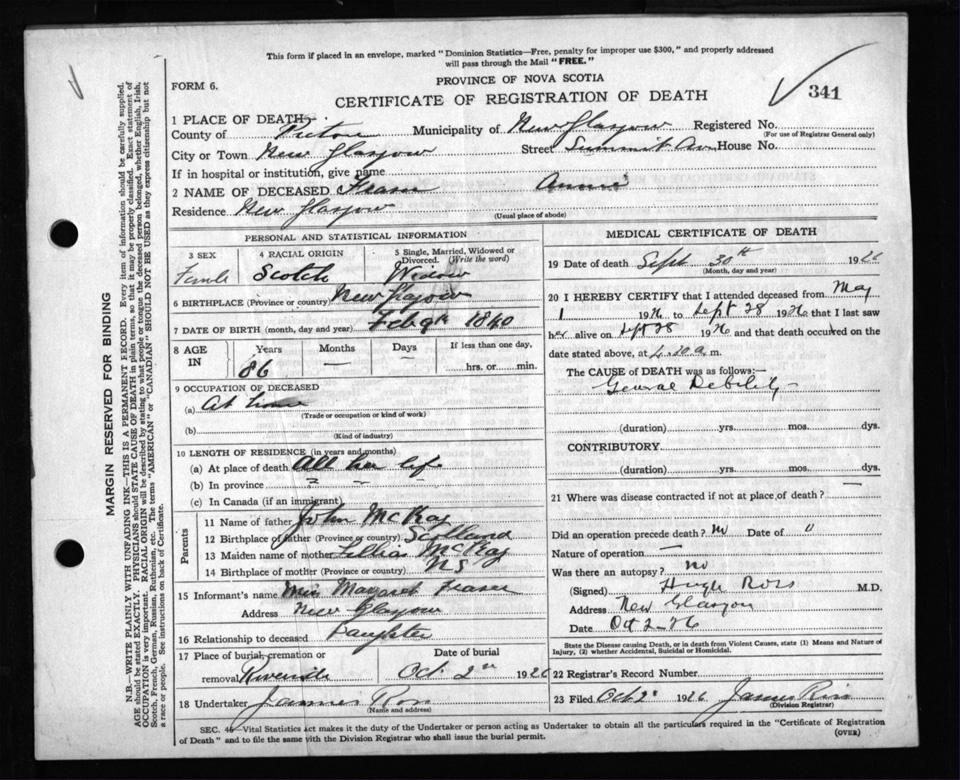 This form if placed in an envelope, marked "Dominion Statistics—Free, penalty for improper use $300," and properly addressed
will pass through the Mail "FREE."
FORM 6.
PROVINCE OF NOVA SCOTIA
CERTIFICATE OF REGISTRATION OF DEATH
341
1 PLACE OF DEATH
County of Pictou Municipality of New Glasgow Registered No.
(For use of Registrar General only)
City or Town New Glasgow Street Summit Ave House No.
If in hospital or institution, give name
2 NAME OF DECEASED Fraser Annie
Residence New Glasgow
(Usual place of abode)
PERSONAL AND STATISTICAL INFORMATION
3 SEX 4 RACIAL ORIGIN 5 Single, Married, Widowed or Divorced. (Write the word)
Female Scotch Widow
6 BIRTHPLACE (Province or country) New Glasgow
7 DATE OF BIRTH (month, day and year) Feb 9th 1840
8 AGE IN Years Months Days If less than one day,
86 — — hrs. or min.
9 OCCUPATION OF DECEASED
(a) At home
(Trade or occupation or kind of work)
(b)
(Kind of industry)
10 LENGTH OF RESIDENCE (in years and months)
(a) At place of death All her life
(b) In province " " "
(c) In Canada (if an immigrant)
Parents
11 Name of father John McKay
12 Birthplace of father (Province or country) Scotland
13 Maiden name of mother Lillian McKay
14 Birthplace of mother (Province or country) NS
15 Informant's name Miss Margaret Fraser
Address New Glasgow
16 Relationship to deceased Daughter
17 Place of burial, cremation or Date of burial
removal Riverside Oct 2nd 1926
18 Undertaker James Ross
(Name and address)
MEDICAL CERTIFICATE OF DEATH
19 Date of death Sept 30th 1926
(Month, day and year)
20 I HEREBY CERTIFY that I attended deceased from May
1 1926 to Sept 28 1926 that I last saw
her alive on Sept 28 1926 and that death occurred on the
date stated above, at 4.30 a. m.
The CAUSE OF DEATH was as follows:
General Debility
(duration) yrs. mos. dys.
CONTRIBUTORY
(duration) yrs. mos. dys.
21 Where was disease contracted if not at place of death? —
Did an operation precede death? No Date of "
Nature of operation —
Was there an autopsy? no
(Signed) Hugh Ross M.D.
Address New Glasgow
Date Oct 2–26
State the Disease causing Death, or in death from Violent Causes, state (1) Means and Nature of
Injury, (2) whether Accidental, Suicidal or Homicidal.
22 Registrar's Record Number
23 Filed Oct 2 1926 James Ross
(Division Registrar)
SEC. 46—Vital Statistics Act makes it the duty of the Undertaker or person acting as Undertaker to obtain all the particulars required in the "Certificate of Registration
of Death" and to file the same with the Division Registrar who shall issue the burial permit.
(OVER)
MARGIN RESERVED FOR BINDING
N.B.—WRITE PLAINLY WITH UNFADING INK—THIS IS A PERMANENT RECORD. Every item of information should be carefully supplied.
AGE should be stated EXACTLY. PHYSICIANS should STATE CAUSE OF DEATH in plain terms, so that it may be properly classified. Exact statement of
OCCUPATION is very important. RACIAL ORIGIN will be described by stating to what people or tongue the deceased person belonged, whether English, Irish,
Scotch, French, German, Russian, Ruthenian, etc. The terms "AMERICAN" or "CANADIAN" SHOULD NOT BE USED as they express citizenship but not
a race or people. See instructions on back of Certificate.